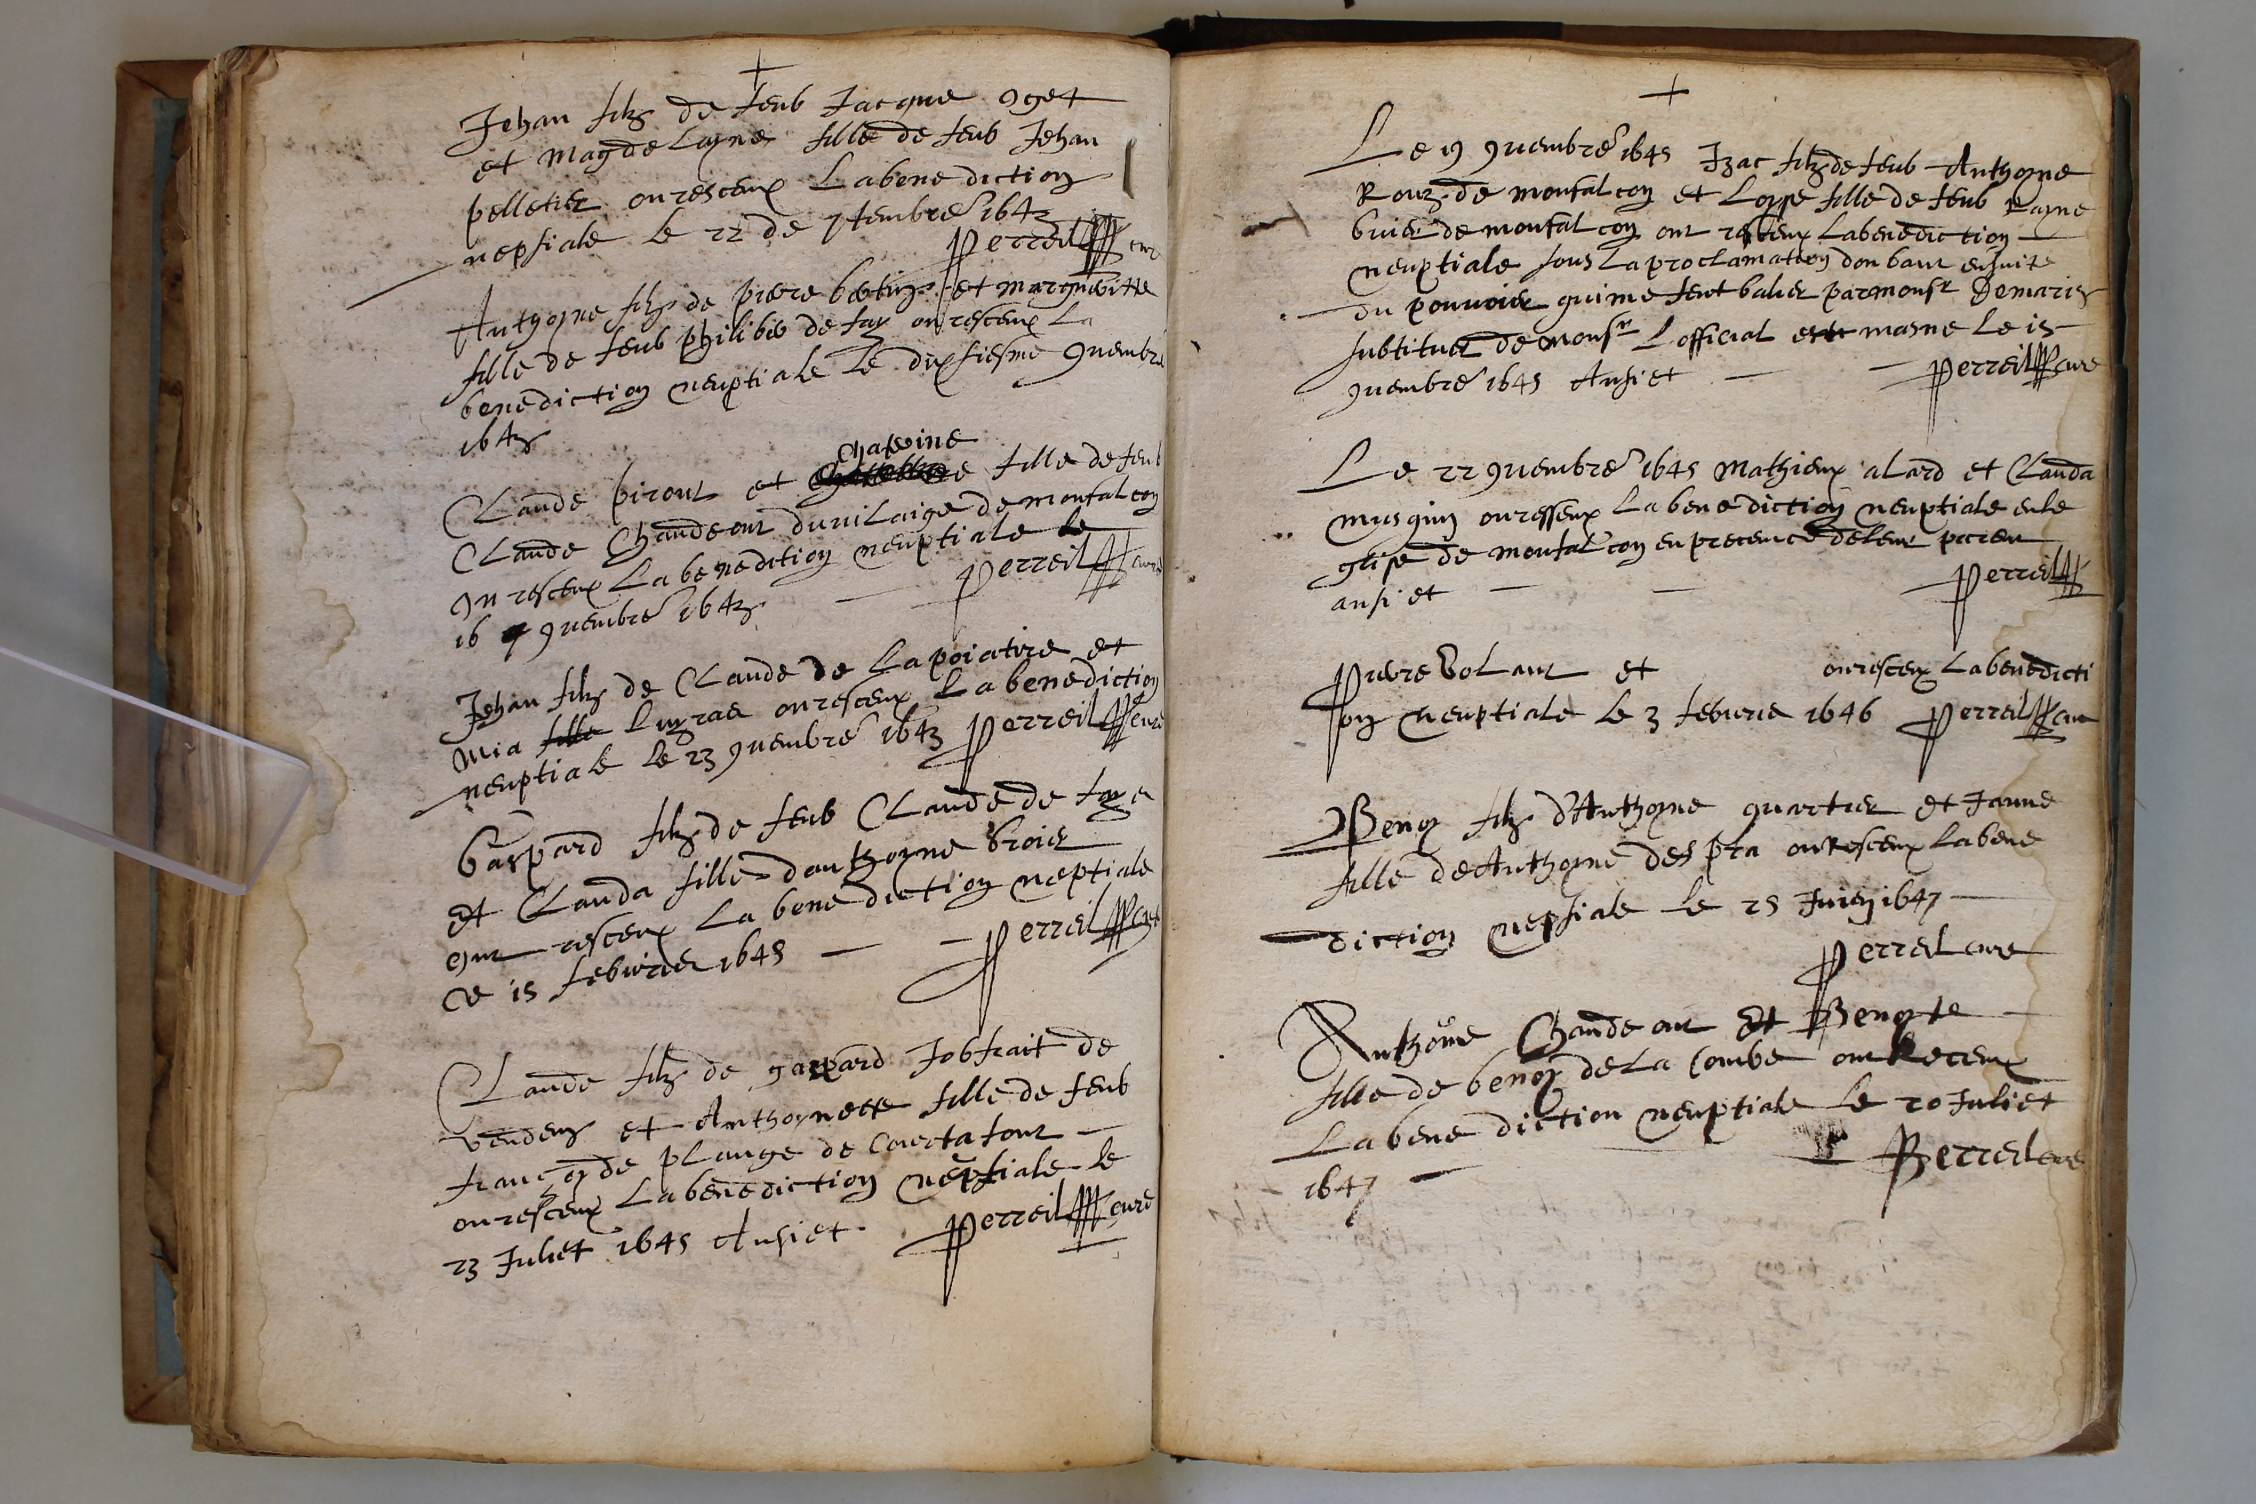 Jehan filz de feub Jacque oget
et magdelayne fille de feub Jehan
pelletier on resceux La benediction
nepsiale le 22 de 7tembre 1643
Perreil cur
Anthoyne filz de pierre et margueritte
fille de feub philibe de fay on resceux La
benediction neuptiale le dixsiesme 9uembre
1643
Chaterine
Claude pirout et fille de feub
Claude Chandeour du vilaige de monfalcon
On resceux La benedition neuptiale le
16 9uembre 1643 Perreil cure
Jehan filz de Claude de Lapoiatire et
Mia fille on resceux La benediction
neuptiale le 23 9uembre 1643 Perreil cure
Gaspard filz de feub Claude de faye
et Clauda fille danthoyne broier
ont resceux La benediction neptiale
ce 15 febvrier 1645 Perreil cure
Claude filz de gaspard Jobfrait de
vendens et Anthoynette fille de feub
françoy de plange de Courtafour
on resceux La benediction nepsiale le
23 Juliet 1645 Ansi et Perreil cure
Le 19 9uembre 1645 Izac filz de feub Anthoyne
Rouz de monfalcon et Loyse fille de feub Rayne
buier de monfalcon ont resceux La benediction
neuptiale sous La proclamation don banc ensuite
du pouvoier qui me feut balier par monsr Demaries
subtituet de monsr Lofficial masne le 15
9uembre 1645 Ansi et Perreil cure
Le 22 9uembre 1645 Mathieux alard et Clauda
musquin on resseux La benediction neuptiale en le
glise de monfalcon en precence de leur paren
ansi et Perreil
Pierre Volant et on resceux La benedicti
on neuptiale le 3 febvrie 1646 Perreil cure
Benoy filz d'Anthoyne quartier et Janne
fille de Anthoyne des pra on resceux La bene
diction nepsiale le 25 Juien 1647
Perreil cure
Anthoine Chandeour Et Benoyte
fille de benoy de La Combe ont Receux
La bene diction neuptiale le 20 Juliet
1647 Perreil cure